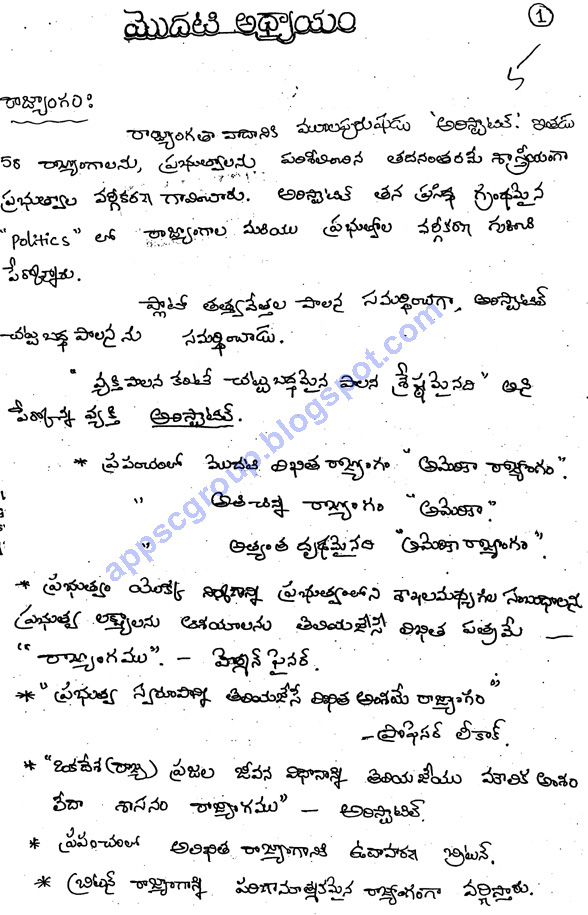 1
మొదటి అధ్యాయం
రాజ్యాంగం:
రాజ్యాంగతా వాదానికి మూలపురుషుడు 'అరిస్టాటిల్'. ఇతడు
58 రాజ్యాంగాలను, ప్రభుత్వాలను పరిశీలించిన తదనంతరమే శాస్త్రీయంగా
ప్రభుత్వాల వర్గీకరణ గావించారు. అరిస్టాటిల్ తన ప్రసిద్ధ గ్రంథమైన
"Politics" లో రాజ్యాంగాల మరియు ప్రభుత్వాల వర్గీకరణ గురించి
పేర్కొన్నారు.
ప్లాటో తత్త్వవేత్తల పాలన సమర్థించగా, అరిస్టాటిల్
చట్టబద్ధ పాలనను సమర్థించాడు.
"వ్యక్తి పాలన కంటే చట్టబద్ధమైన పాలన శ్రేష్ఠమైనది" అని
పేర్కొన్న వ్యక్తి అరిస్టాటిల్.
* ప్రపంచంలో మొదటి లిఖిత రాజ్యాంగం "అమెరికా రాజ్యాంగం".
" అతిచిన్న రాజ్యాంగం "అమెరికా".
" అత్యంత దృఢమైనది "అమెరికా రాజ్యాంగం".
* ప్రభుత్వం యొక్క నిర్మాణాన్ని ప్రభుత్వంలోని శాఖలమధ్యగల సంబంధాలను
ప్రభుత్వ లక్ష్యాలను ఆశయాలను తెలియజేసే లిఖిత పత్రమే —
"రాజ్యాంగము". - ఫైనర్.
* "ప్రభుత్వ స్వరూపాన్ని తెలియజేసే లిఖిత అంశమే రాజ్యాంగం"
- ప్రొఫెసర్ లీకాక్.
* "ఒకదేశ(రాజ్య) ప్రజల జీవన విధానాన్ని తెలియజేయు మౌలిక అంశం
లేదా శాసనం రాజ్యాంగము" - అరిస్టాటిల్.
* ప్రపంచంలో అలిఖిత రాజ్యాంగానికి ఉదాహరణ బ్రిటన్.
* బ్రిటన్ రాజ్యాంగాన్ని పరిణామాత్మకమైన రాజ్యాంగంగా వర్ణిస్తారు.
appscgroup.blogspot.com